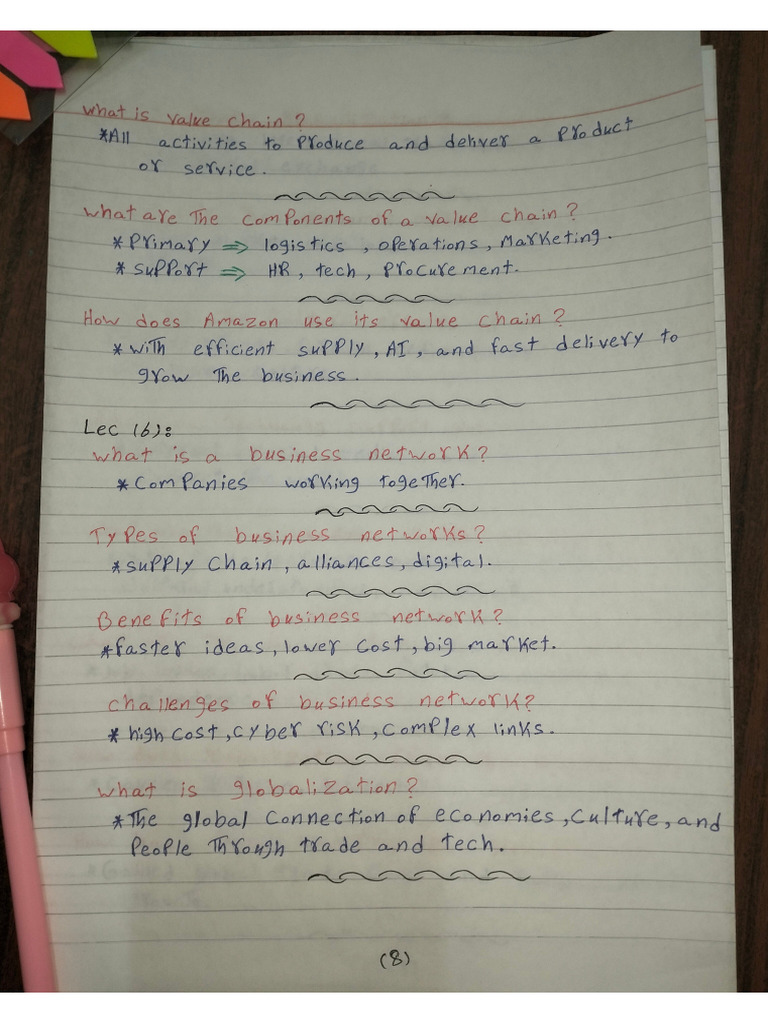 What is value chain?
*All activities to produce and deliver a product
or service.
What are The components of a value chain?
*Primary ⇒ logistics, operations, Marketing.
*support ⇒ HR, tech, Procurement.
How does Amazon use its value chain?
*with efficient supply, AI, and fast delivery to
grow The business.
Lec (6):
what is a business network?
*Companies working together.
Types of business networks?
*supply chain, alliances, digital.
Benefits of business network?
*faster ideas, lower cost, big market.
challenges of business network?
*high cost, cyber risk, complex links.
what is globalization?
*The global connection of economies, culture, and
People Through trade and tech.
(8)